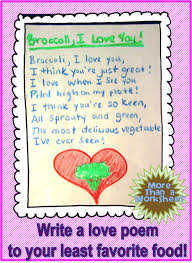 Broccoli, I Love You!
Broccoli, I love you,
I think you're just great!
I love when I see you
Piled high on my plate!
I think you're so keen,
All sprouty and green,
The most delicious vegetable
I've ever seen!
More
Than a
Worksheet
Write a love poem
to your least favorite food!